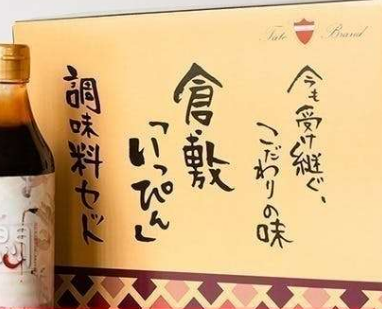 Tate Brand
今も受け継ぐ、
こだわりの味
倉敷
「いっぴん」
調味料セット